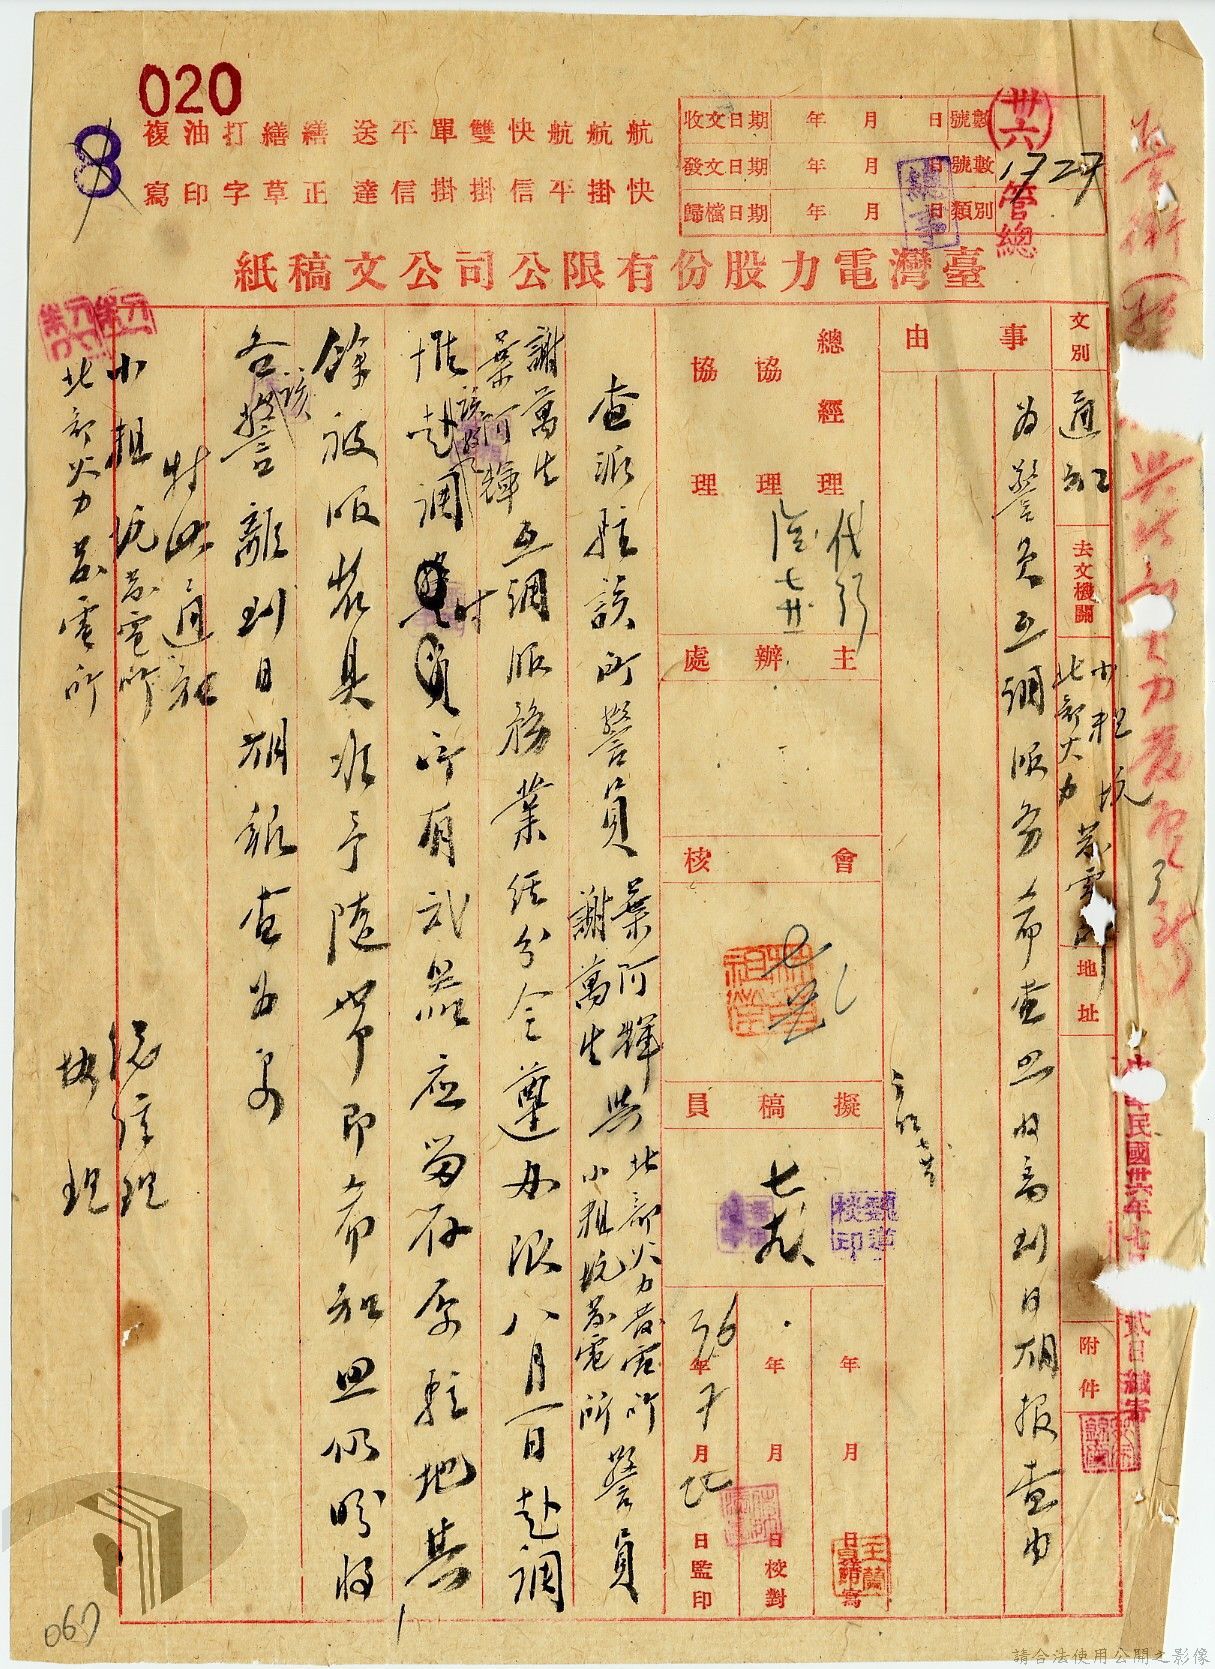 020
8
航 航 航 快 雙 單 平 送 繕 繕 打 油 複
快 掛 平 信 掛 掛 信 達 正 草 字 印 寫
收文日期 年 月 日 號數
發文日期 年 月 日 號數
歸檔日期 年 月 日 類別
(卅六)
管總
1727
臺灣電力股份有限公司公文稿紙
文別
通知
去文機關
小粗坑
北部火力
發電所
地址
附件
事由
為警員互調服務希查照收為到日期报查由
總經理
協理
協理
代行
主辦處
會核
擬稿員
年 月 日繕寫
年 月 日校對
36年7月 日監印
查派駐該所警員葉阿輝
謝萬生
與北部火力發電所
小粗坑發電所
警員
謝萬生
葉阿輝
互調服務業經分令遵办限八月一日赴調
惟赴調時所有武器應留存原駐地其
餘被服裝具准予隨帶即希知照仍盼將
各該警離到日期報查為要
特此通知
小粗坑發電所
北部火力發電所
總經理
協理
067
請合法使用公開之影像